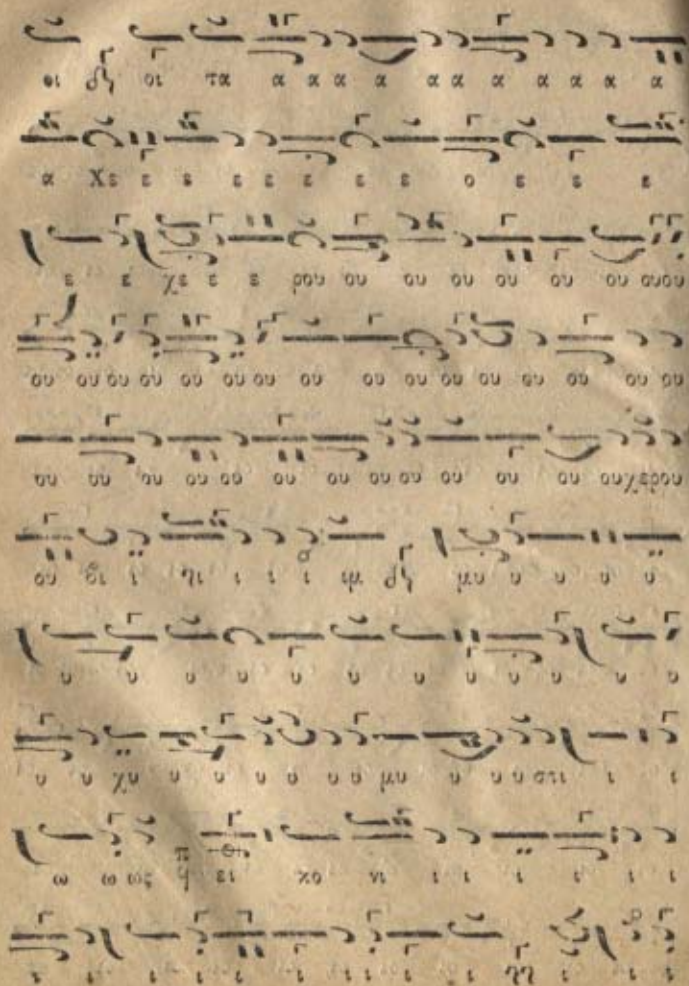 οι οι τα α α α α α α α α α α α
α Χε ε ε ε ε ε ε ο ε ε ε
ε ε χε ε ε ρου ου ου ου ου ου ου ουου
ου ου ου ου ου ου ου ου ου ου ου ου ου ου ου ου
ου ου ου ου ου ου ου ου ου ου ου ου ου χερου
ου βι ι χι ι ι ι μι μυ υ υ υ υ
υ υ υ υ υ υ υ υ υ υ υ υ
υ υ χυ υ υ υ υ υ υ υ μυ υ υ υ στι ι ι
ω ω ως ει κο νι ι ι ι ι ι ι
ι ι ι ι ι ι ι ι ι ι ι ι ι ι